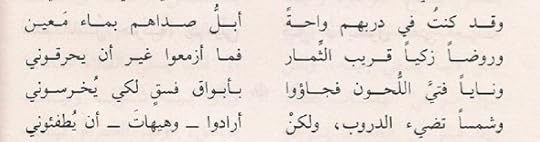 وقد كنتُ في دربهم واحةً أبلُّ صداهم بماء مَعين
وروضاً زكياً قريب الثِّمار فما أزمعوا غير أن يحرقوني
وناياً فتيَّ اللُّحون فجاؤوا بأبواق فسقٍ لكي يُخرسوني
وشمساً تضيء الدروب، ولكنْ أرادوا ــ وهيهاتَ ــ أن يُطفئوني